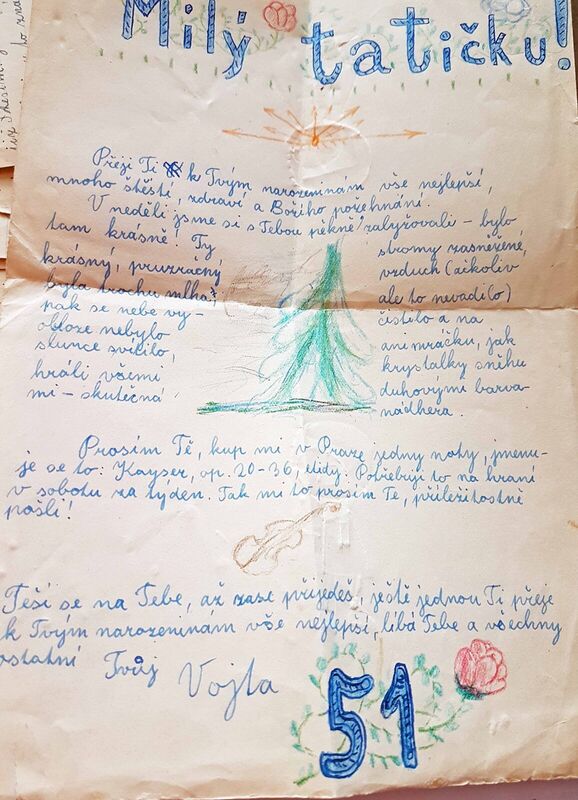 Milý tatičku!
Přeji Ti k Tvým narozeninám vše nejlepší,
mnoho štěstí, zdraví a Božího požehnání.
V neděli jsme si s Tebou pěkně zalyžovali – bylo
tam krásně! Ty stromy zasněžené,
krásný, průzračný vzduch (ačkoliv
byla trochu mlha, ale to nevadilo)
pak se nebe vy- čistilo a na
obloze nebylo ani mráčku, jak
slunce svítilo, krystalky sněhu
hráli všemi duhovými barva-
mi – skutečná nádhera.
Prosím Tě, kup mi v Praze jedny noty, jmenu-
je se to: Kayser, op. 20-36, etidy. Potřebuji to na hraní
v sobotu za týden. Tak mi to prosím Tě, příležitostně
pošli!
Těší se na Tebe, až zase přijedeš, ještě jednou Ti přeje
k Tvým narozeninam vše nejlepší, líbá Tebe a všechny
ostatní Tvůj Vojta
51